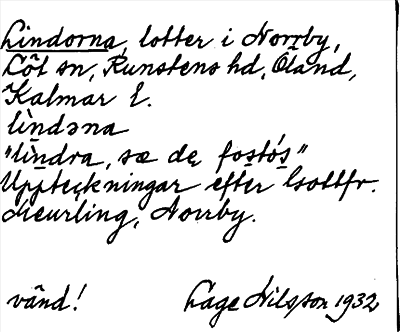 Lindorna, lotter i Norrby,
Löt sn, Runstens hd, Öland,
Kalmar l.
lìndəna
"lìndra, sæ de fostós"
Uppteckningar efter Gottfr.
Meurling, Norrby.
vänd! Lage Nilsson 1932